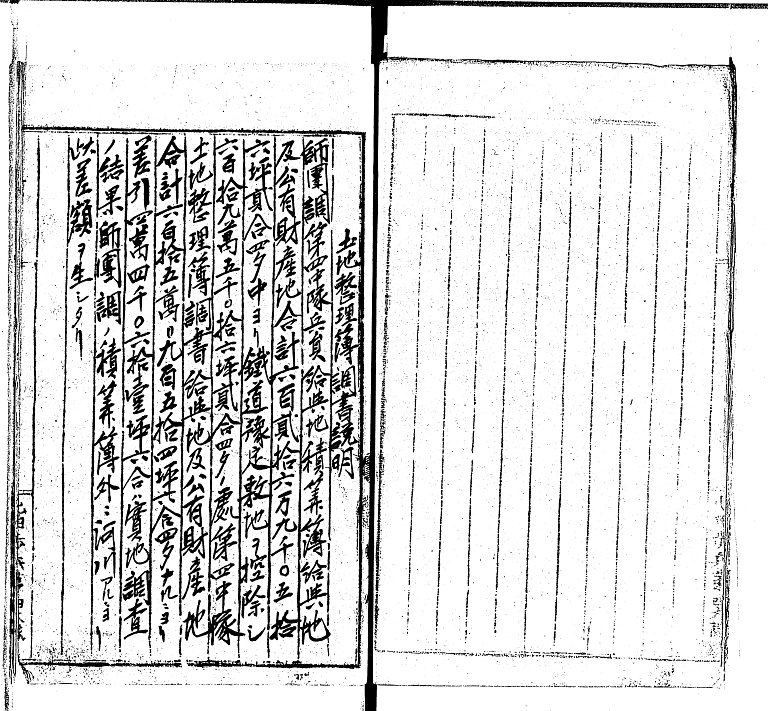 土地整理簿調書説明
師團調第四中隊兵員給與地積算簿給與地
及公有財産地合計六百貳拾六万九千〇五拾
六坪貳合四夕中ヨリ鐵道豫定敷地ヲ控除シ
六百拾九萬五千〇拾六坪貳合四夕ノ處第四中隊
土地整理簿調書給與地及公有財産地
合計六百拾五萬〇九百五拾四坪六合四夕ナルニヨリ
差引四萬四千〇六拾壹坪六合ハ實地調査
ノ結果師團調ノ積算簿外ニ河川アルニヨリ
此差額ヲ生シタリ